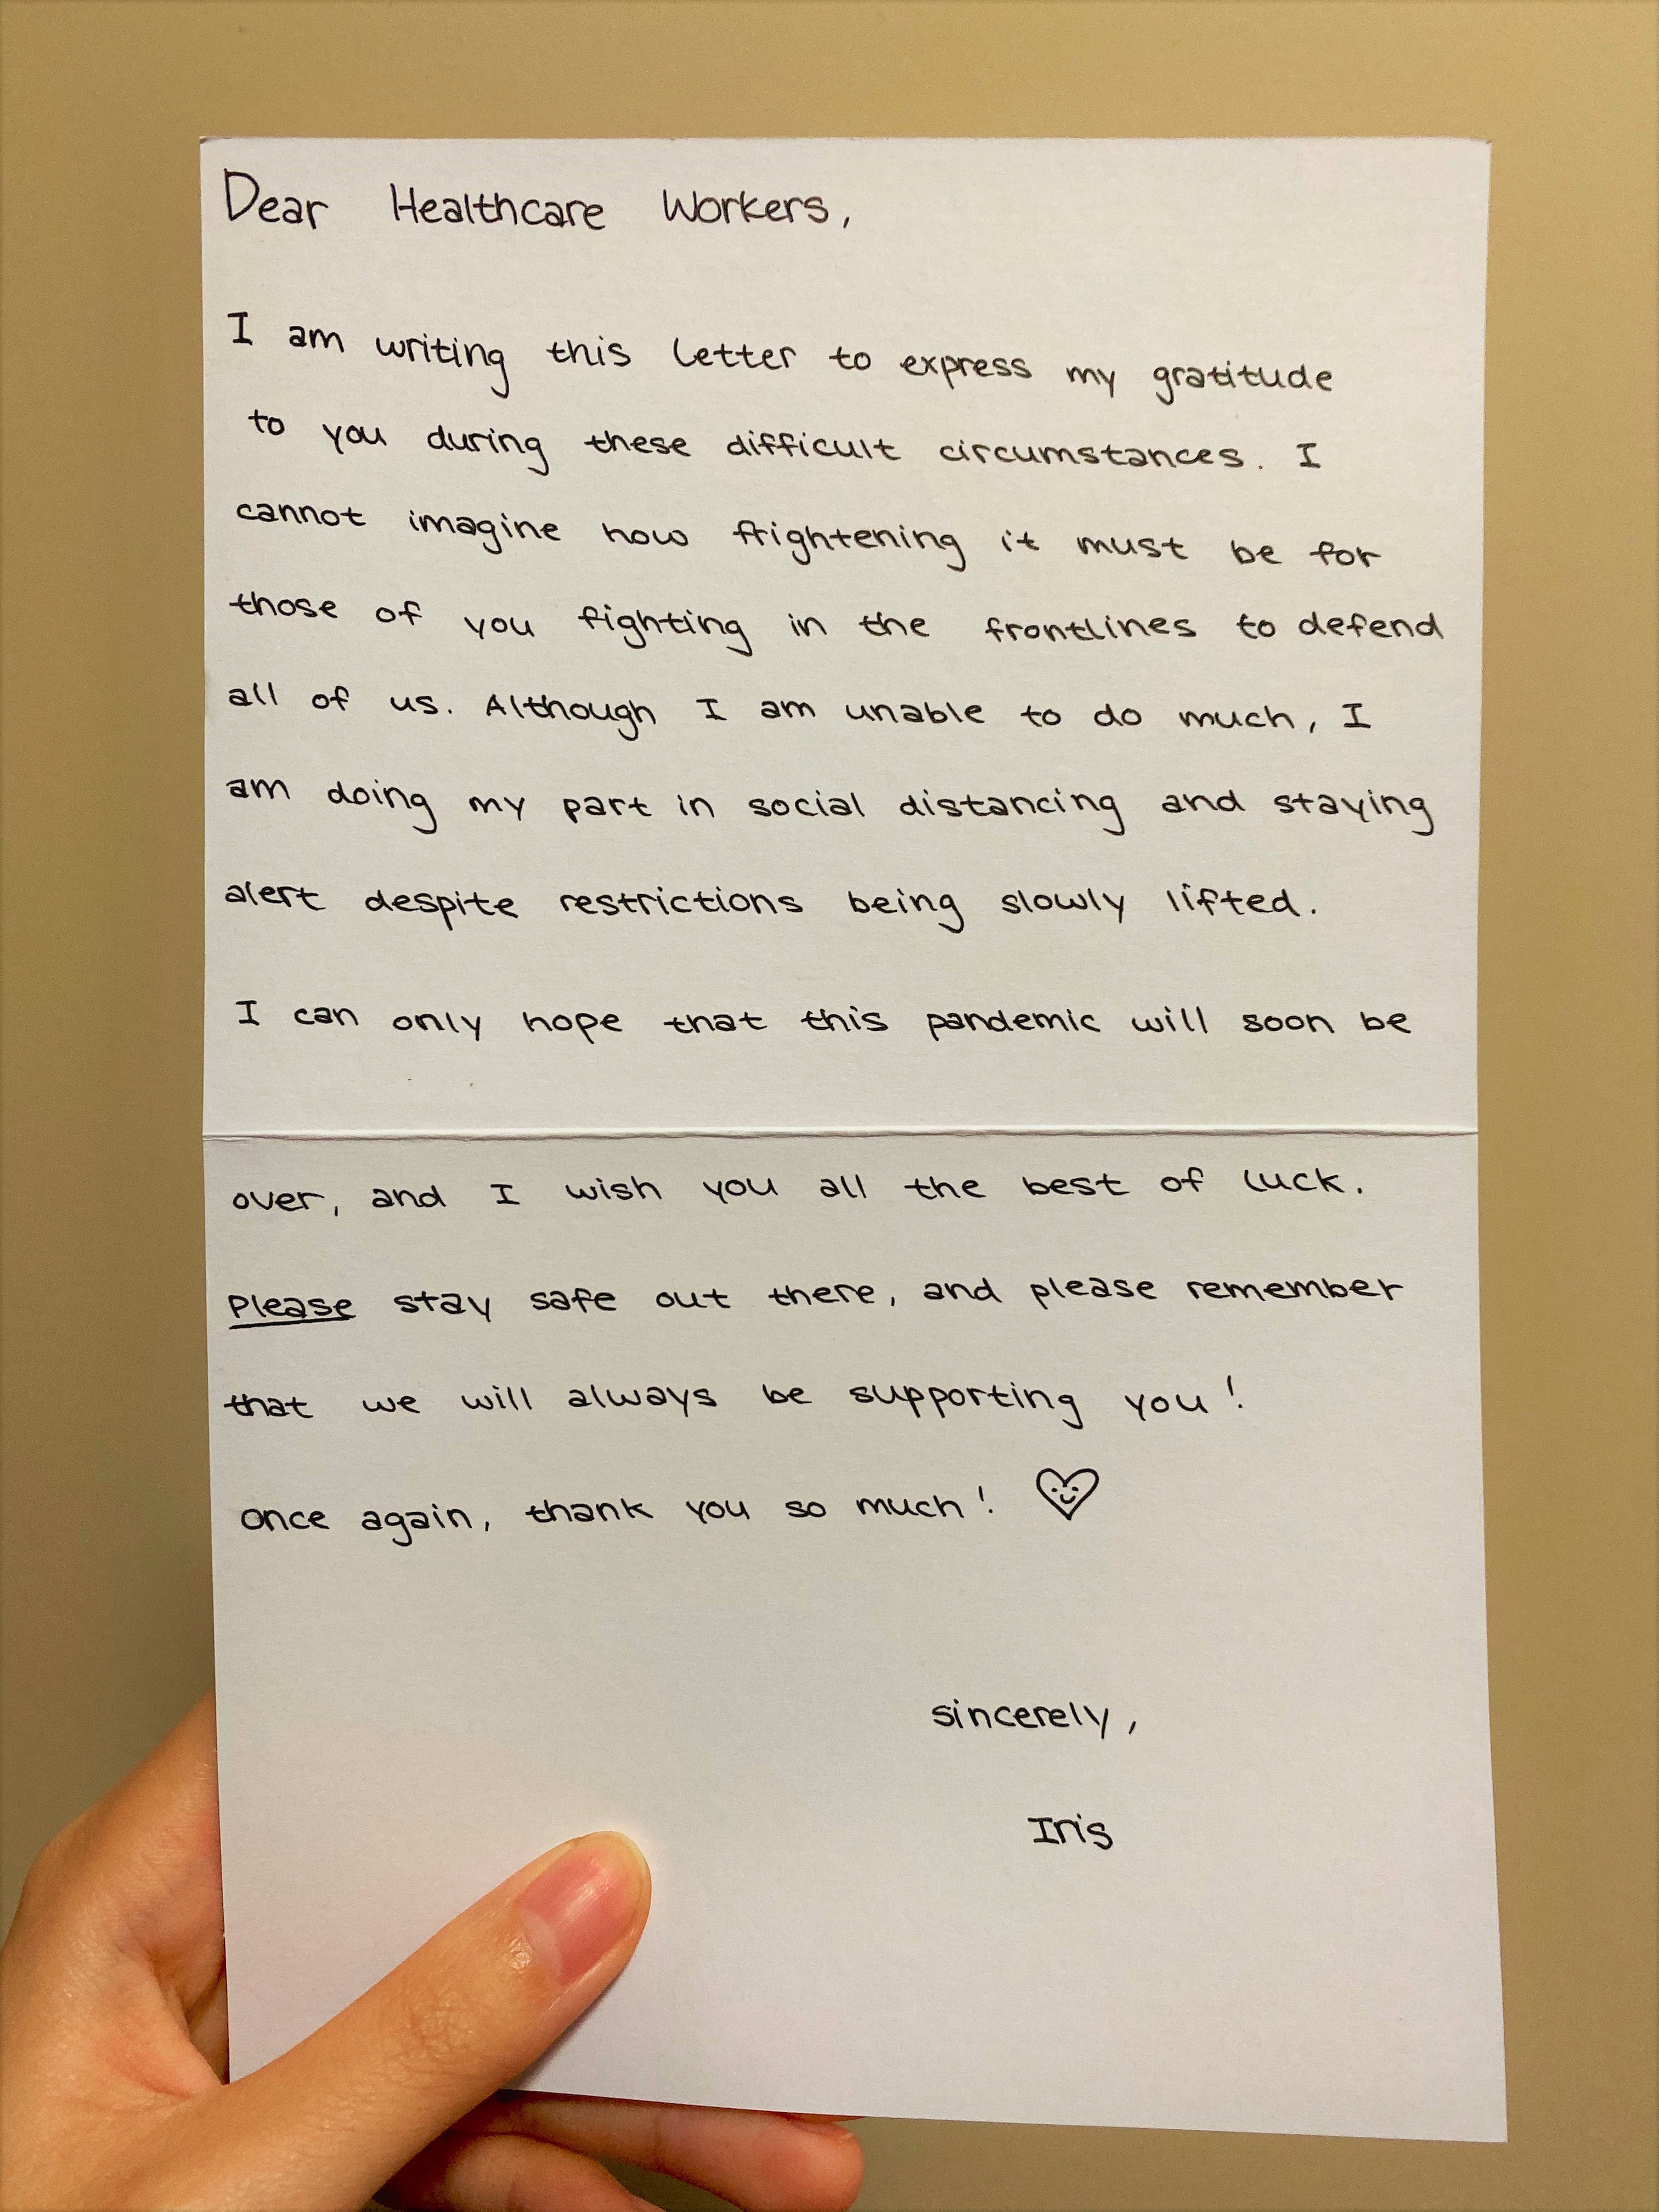 Dear Healthcare Workers,
I am writing this letter to express my gratitude
to you during these difficult circumstances. I
cannot imagine how frightening it must be for
those of you fighting in the frontlines to defend
all of us. Although I am unable to do much, I
am doing my part in social distancing and staying
alert despite restrictions being slowly lifted.
I can only hope that this pandemic will soon be
over, and I wish you all the best of luck.
Please stay safe out there, and please remember
that we will always be supporting you!
Once again, thank you so much!
sincerely,
Iris